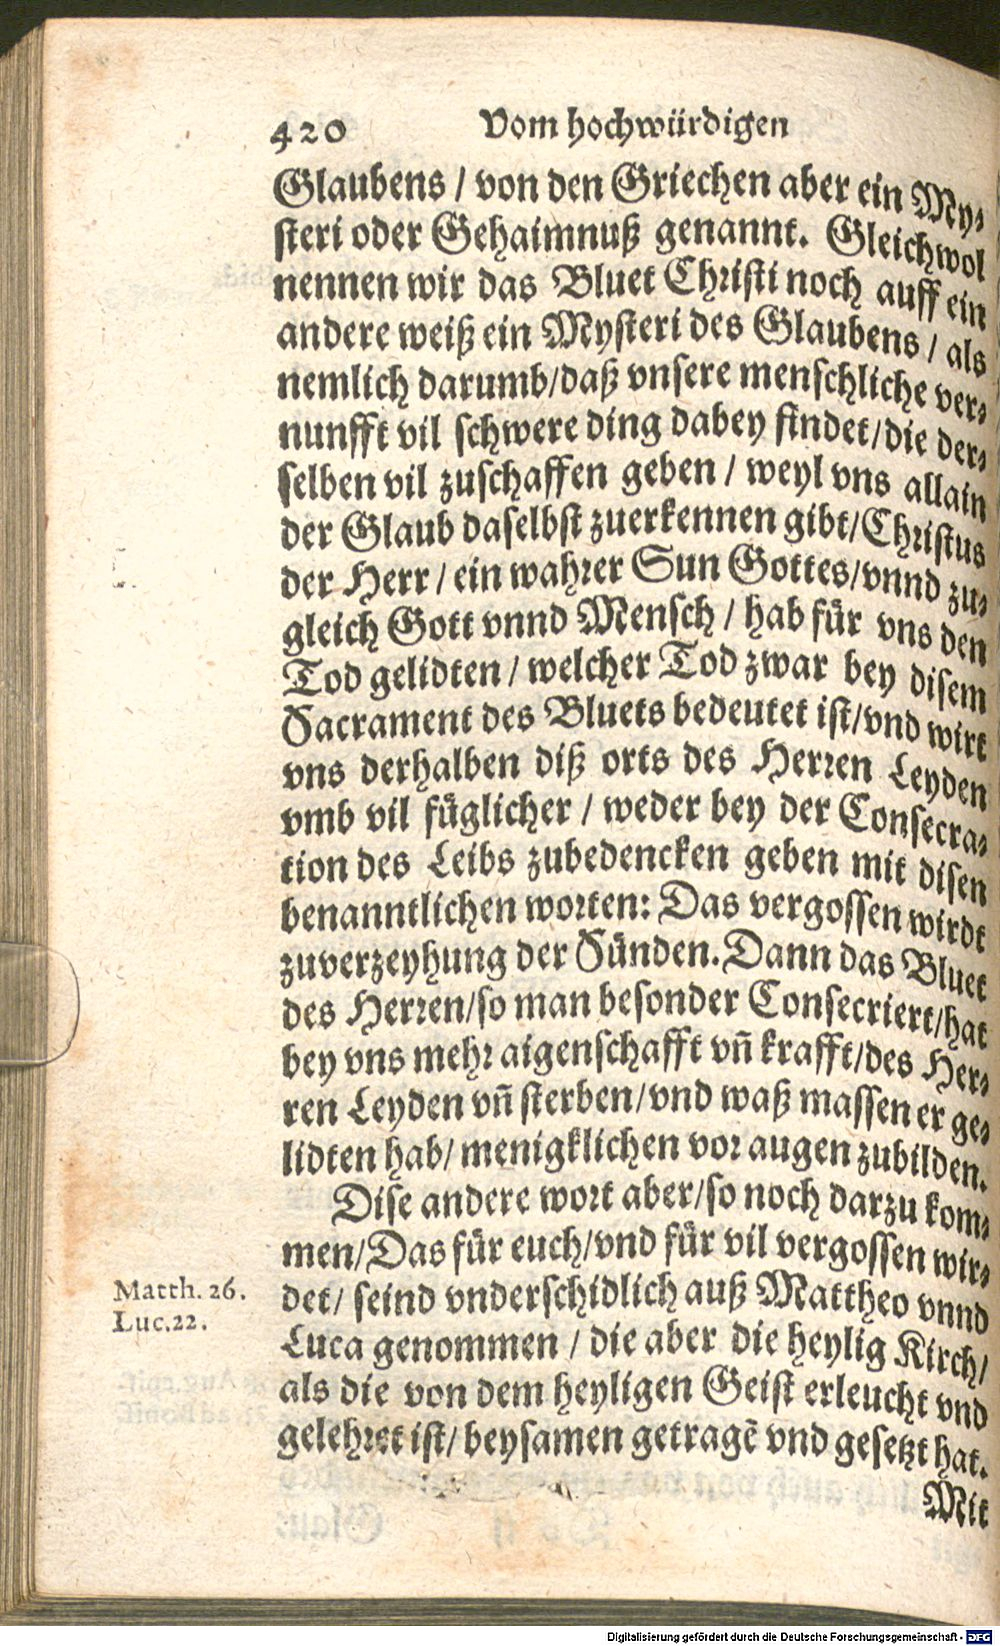 420 Vom hochwürdigen
Glaubens / von den Griechen aber ein My-
steri oder Gehaimnuß genannt. Gleichwol
nennen wir das Bluet Christi noch auff ein
andere weiß ein Mysteri des Glaubens / als
nemlich darumb/daß vnsere menschliche ver-
nunfft vil schwere ding dabey findet/die der-
selben vil zuschaffen geben / weyl vns allain
der Glaub daselbst zuerkennen gibt/Christus
der Herr / ein wahrer Sun Gottes/vnnd zu-
gleich Gott vnnd Mensch / hab für vns den
Tod gelidten / welcher Tod zwar bey disem
Sacrament des Bluets bedeutet ist/vnd wirt
vns derhalben diß orts des Herren Leyden
vmb vil füglicher / weder bey der Consecra-
tion des Leibs zubedencken geben mit disen
benanntlichen worten: Das vergossen wirdt
zuverzeyhung der Sünden. Dann das Bluet
des Herren/so man besonder Consecriert/hat
bey vns mehr aigenschafft vñ krafft/des Her-
ren Leyden vñ sterben/vnd waß massen er ge-
lidten hab/ menigklichen vor augen zubilden.
Dise andere wort aber/so noch darzu kom-
men/Das für euch/vnd für vil vergossen wir-
Matth. 26. det/ seind vnderschidlich auß Mattheo vnnd
Luc.22. Luca genommen / die aber die heylig Kirch/
als die von dem heyligen Geist erleucht vnd
gelehret ist/ beysamen getragē vnd gesetzt hat.
Mit
Digitalisierung gefördert durch die Deutsche Forschungsgemeinschaft - DFG